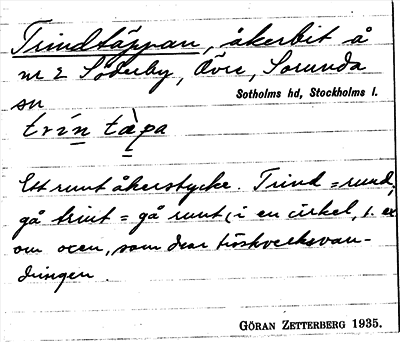 Trindtäppan, åkerbit å
nr 2 Söderby, Övre, Sorunda
sn
Sotholms hd, Stockholms l.
trín tàpa
Ett runt åkerstycke. Trind = rund;
gå trint = gå runt, i en cirkel, t. ex
om oxen, som drar tröskverksvan-
dringen.
GÖRAN ZETTERBERG 1935.